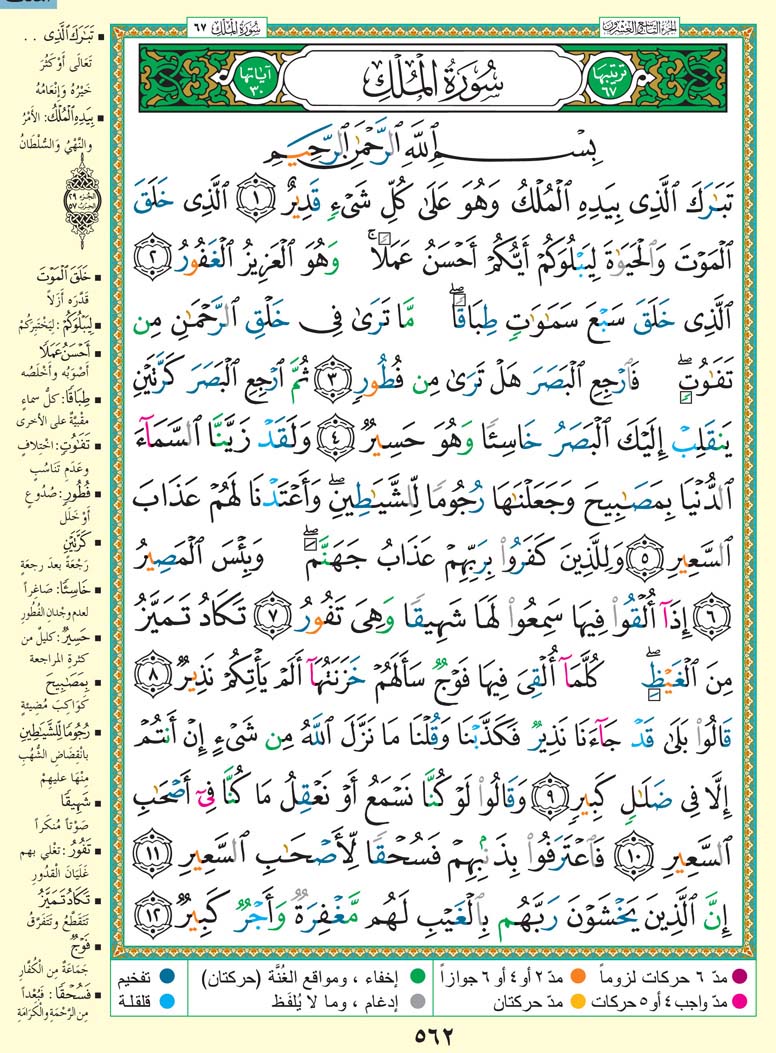 الملك
الجزء التاسع والعشرون
سورة الملك ٦٧
ترتيبها ٦٧
سُورَةُ الْمُلْكِ
آياتها ٣٠
بِسْمِ اللَّهِ الرَّحْمَٰنِ الرَّحِيمِ
تَبَارَكَ الَّذِي بِيَدِهِ الْمُلْكُ وَهُوَ عَلَىٰ كُلِّ شَيْءٍ قَدِيرٌ ١ الَّذِي خَلَقَ
الْمَوْتَ وَالْحَيَاةَ لِيَبْلُوَكُمْ أَيُّكُمْ أَحْسَنُ عَمَلًا ۚ وَهُوَ الْعَزِيزُ الْغَفُورُ ٢
الَّذِي خَلَقَ سَبْعَ سَمَاوَاتٍ طِبَاقًا ۖ مَّا تَرَىٰ فِي خَلْقِ الرَّحْمَٰنِ مِن
تَفَاوُتٍ ۖ فَارْجِعِ الْبَصَرَ هَلْ تَرَىٰ مِن فُطُورٍ ٣ ثُمَّ ارْجِعِ الْبَصَرَ كَرَّتَيْنِ
يَنقَلِبْ إِلَيْكَ الْبَصَرُ خَاسِئًا وَهُوَ حَسِيرٌ ٤ وَلَقَدْ زَيَّنَّا السَّمَاءَ
الدُّنْيَا بِمَصَابِيحَ وَجَعَلْنَاهَا رُجُومًا لِّلشَّيَاطِينِ ۖ وَأَعْتَدْنَا لَهُمْ عَذَابَ
السَّعِيرِ ٥ وَلِلَّذِينَ كَفَرُوا بِرَبِّهِمْ عَذَابُ جَهَنَّمَ ۖ وَبِئْسَ الْمَصِيرُ
٦ إِذَا أُلْقُوا فِيهَا سَمِعُوا لَهَا شَهِيقًا وَهِيَ تَفُورُ ٧ تَكَادُ تَمَيَّزُ
مِنَ الْغَيْظِ ۖ كُلَّمَا أُلْقِيَ فِيهَا فَوْجٌ سَأَلَهُمْ خَزَنَتُهَا أَلَمْ يَأْتِكُمْ نَذِيرٌ ٨
قَالُوا بَلَىٰ قَدْ جَاءَنَا نَذِيرٌ فَكَذَّبْنَا وَقُلْنَا مَا نَزَّلَ اللَّهُ مِن شَيْءٍ إِنْ أَنتُمْ
إِلَّا فِي ضَلَالٍ كَبِيرٍ ٩ وَقَالُوا لَوْ كُنَّا نَسْمَعُ أَوْ نَعْقِلُ مَا كُنَّا فِي أَصْحَابِ
السَّعِيرِ ١٠ فَاعْتَرَفُوا بِذَنبِهِمْ فَسُحْقًا لِّأَصْحَابِ السَّعِيرِ ١١
إِنَّ الَّذِينَ يَخْشَوْنَ رَبَّهُم بِالْغَيْبِ لَهُم مَّغْفِرَةٌ وَأَجْرٌ كَبِيرٌ ١٢
تَبَارَكَ الَّذِي . .
تَعَالَى أَوْ كَثُرَ
خَيْرُهُ وَإِنْعَامُهُ
بِيَدِهِ الْمُلْكُ: الأَمْرُ
والنَّهْيُ وَالسُّلْطَانُ
الجزء ٢٩
الحزب ٥٧
خَلَقَ الْمَوْتَ
قَدَّرَه أَزَلاً
لِيَبْلُوَكُمْ: لِيَخْتَبِرَكُمْ
أَحْسَنُ عَمَلًا
أَصْوَبُه وأخْلَصُه
طِبَاقًا: كلُّ سماءٍ
مقبيّةٌ على الأخرى
تَفَاوُتٍ: اختلافٍ
وعَدَمِ تَناسُبٍ
فُطُورٍ: صُدُوعٍ
أو خَلَلٍ
كَرَّتَيْنِ
رَجْعَةً بعدَ رجعةٍ
خَاسِئًا: صَاغِراً
لعدم وجْدان الفُطُورِ
حَسِيرٌ: كليلٌ من
كثرةِ المراجعة
بِمَصَابِيحَ
كَوَاكِبَ مُضِيئةٍ
رُجُومًا لِلشَّيَاطِينِ
بانْقِضَاضِ الشُّهُبِ
مِنْهَا عليهمْ
شَهِيقًا
صَوْتاً مُنكَراً
تَفُورُ: تغْلي بهم
غَلَيَانَ الْقُدُورِ
تَكَادُ تَمَيَّزُ
تَتَقَطَّعُ وتَتَفَرَّقُ
فَوْجٌ
جَمَاعَةٌ مِنَ الْكُفَّارِ
فَسُحْقًا: فَبُعْداً
مِنَ الرَّحْمَةِ والْكَرَامَةِ
مدّ ٦ حركات لزوماً
مدّ ٢ أو ٤ أو ٦ جوازاً
إخفاء ، ومواقع الغُنَّة (حركتان)
تفخيم
مدّ واجب ٤ أو ٥ حركات
مدّ حركتان
إدغام ، وما لا يُلفَظ
قلقلة
٥٦٢